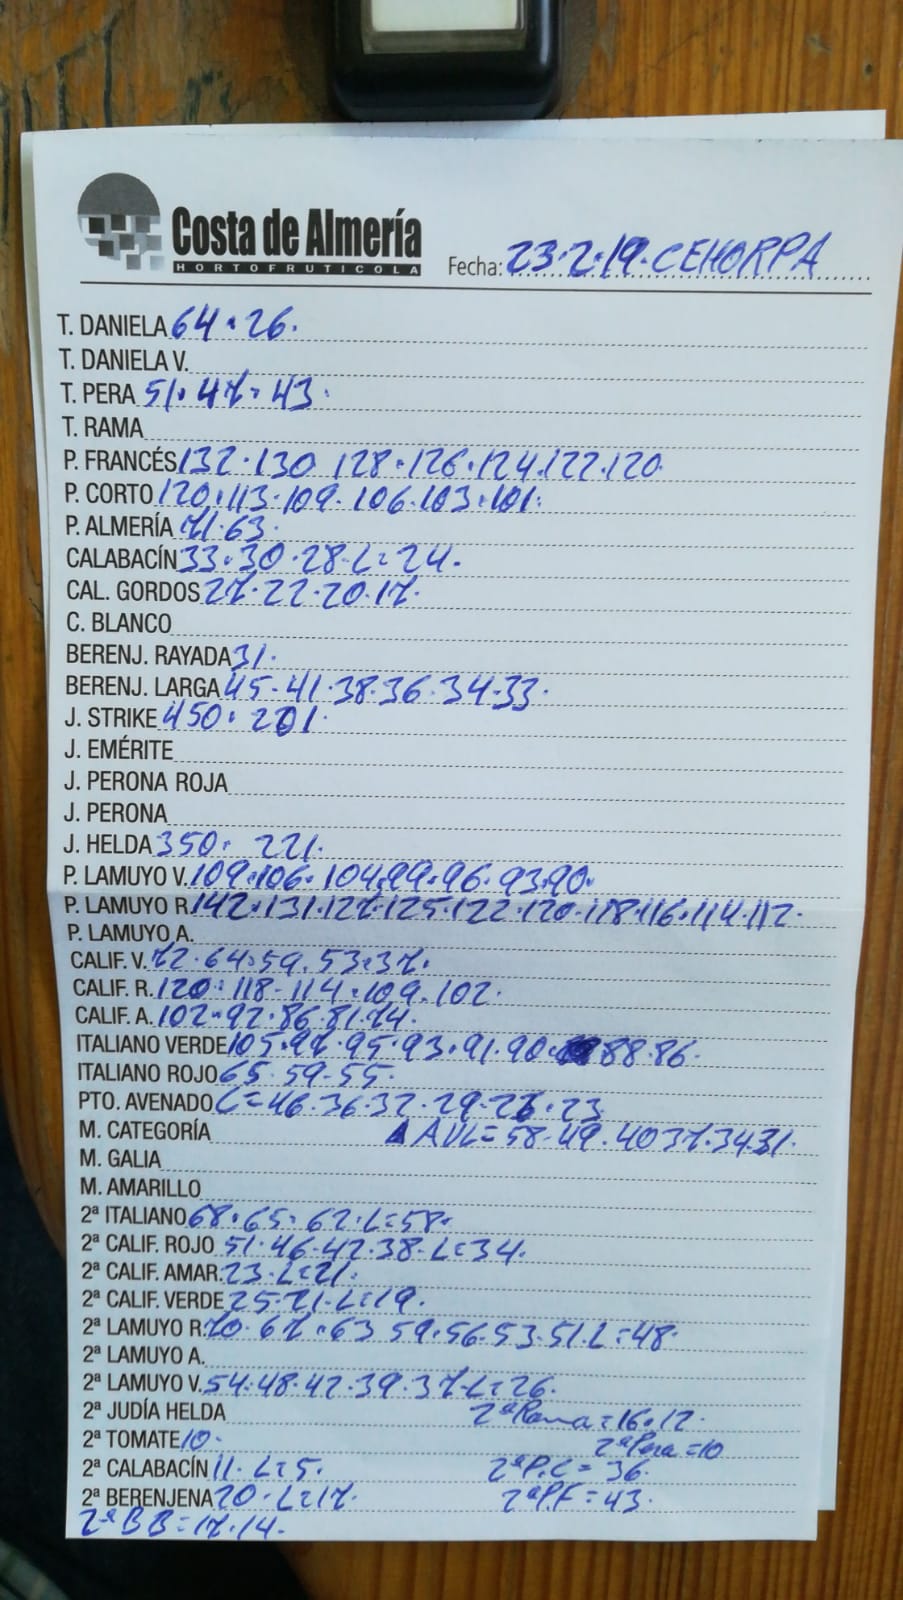 Costa de Almería
HORTOFRUTICOLA
Fecha: 23·2·19·CEHORPA
T. DANIELA 64·26·
T. DANIELA V.
T. PERA 51·47·43·
T. RAMA
P. FRANCÉS 132·130 128·126·124·122·120
P. CORTO 120·113·109·106·103·101·
P. ALMERÍA 71·63·
CALABACÍN 33·30·28·L=24·
CAL. GORDOS 27·22·20·17·
C. BLANCO
BERENJ. RAYADA 31·
BERENJ. LARGA 45·41·38·36·34·33·
J. STRIKE 450·201·
J. EMÉRITE
J. PERONA ROJA
J. PERONA
J. HELDA 350· 221·
P. LAMUYO V. 109·106·104·99·96·93·90·
P. LAMUYO R. 142·131·127·125·122·120·118·116·114·112·
P. LAMUYO A.
CALIF. V. 72·64·59·53·37·
CALIF. R. 120·118·114·109·102·
CALIF. A. 102·92·86·81·74·
ITALIANO VERDE 105·97·95·93·91·90· 88·86·
ITALIANO ROJO 65·59·55·
PTO. AVENADO C=46·36·32·29·23
M. CATEGORÍA AVL=58·49·40 37·34·31·
M. GALIA
M. AMARILLO
2ª ITALIANO 68·65·62·L=58·
2ª CALIF. ROJO 51·46·42·38·L=34·
2ª CALIF. AMAR. 23·L=21·
2ª CALIF. VERDE 25·21·L=19·
2ª LAMUYO R. 70·67·63 59·56·53·51·L=48·
2ª LAMUYO A.
2ª LAMUYO V. 54·48·42·39·37·L=26·
2ª JUDÍA HELDA 2ª Rama=16·12·
2ª TOMATE 10· 2ª Pera=10
2ª CALABACÍN 11·L=5· 2ªP.C=36·
2ª BERENJENA 20·L=17· 2ªP.F=43·
2ªBB=17·14·